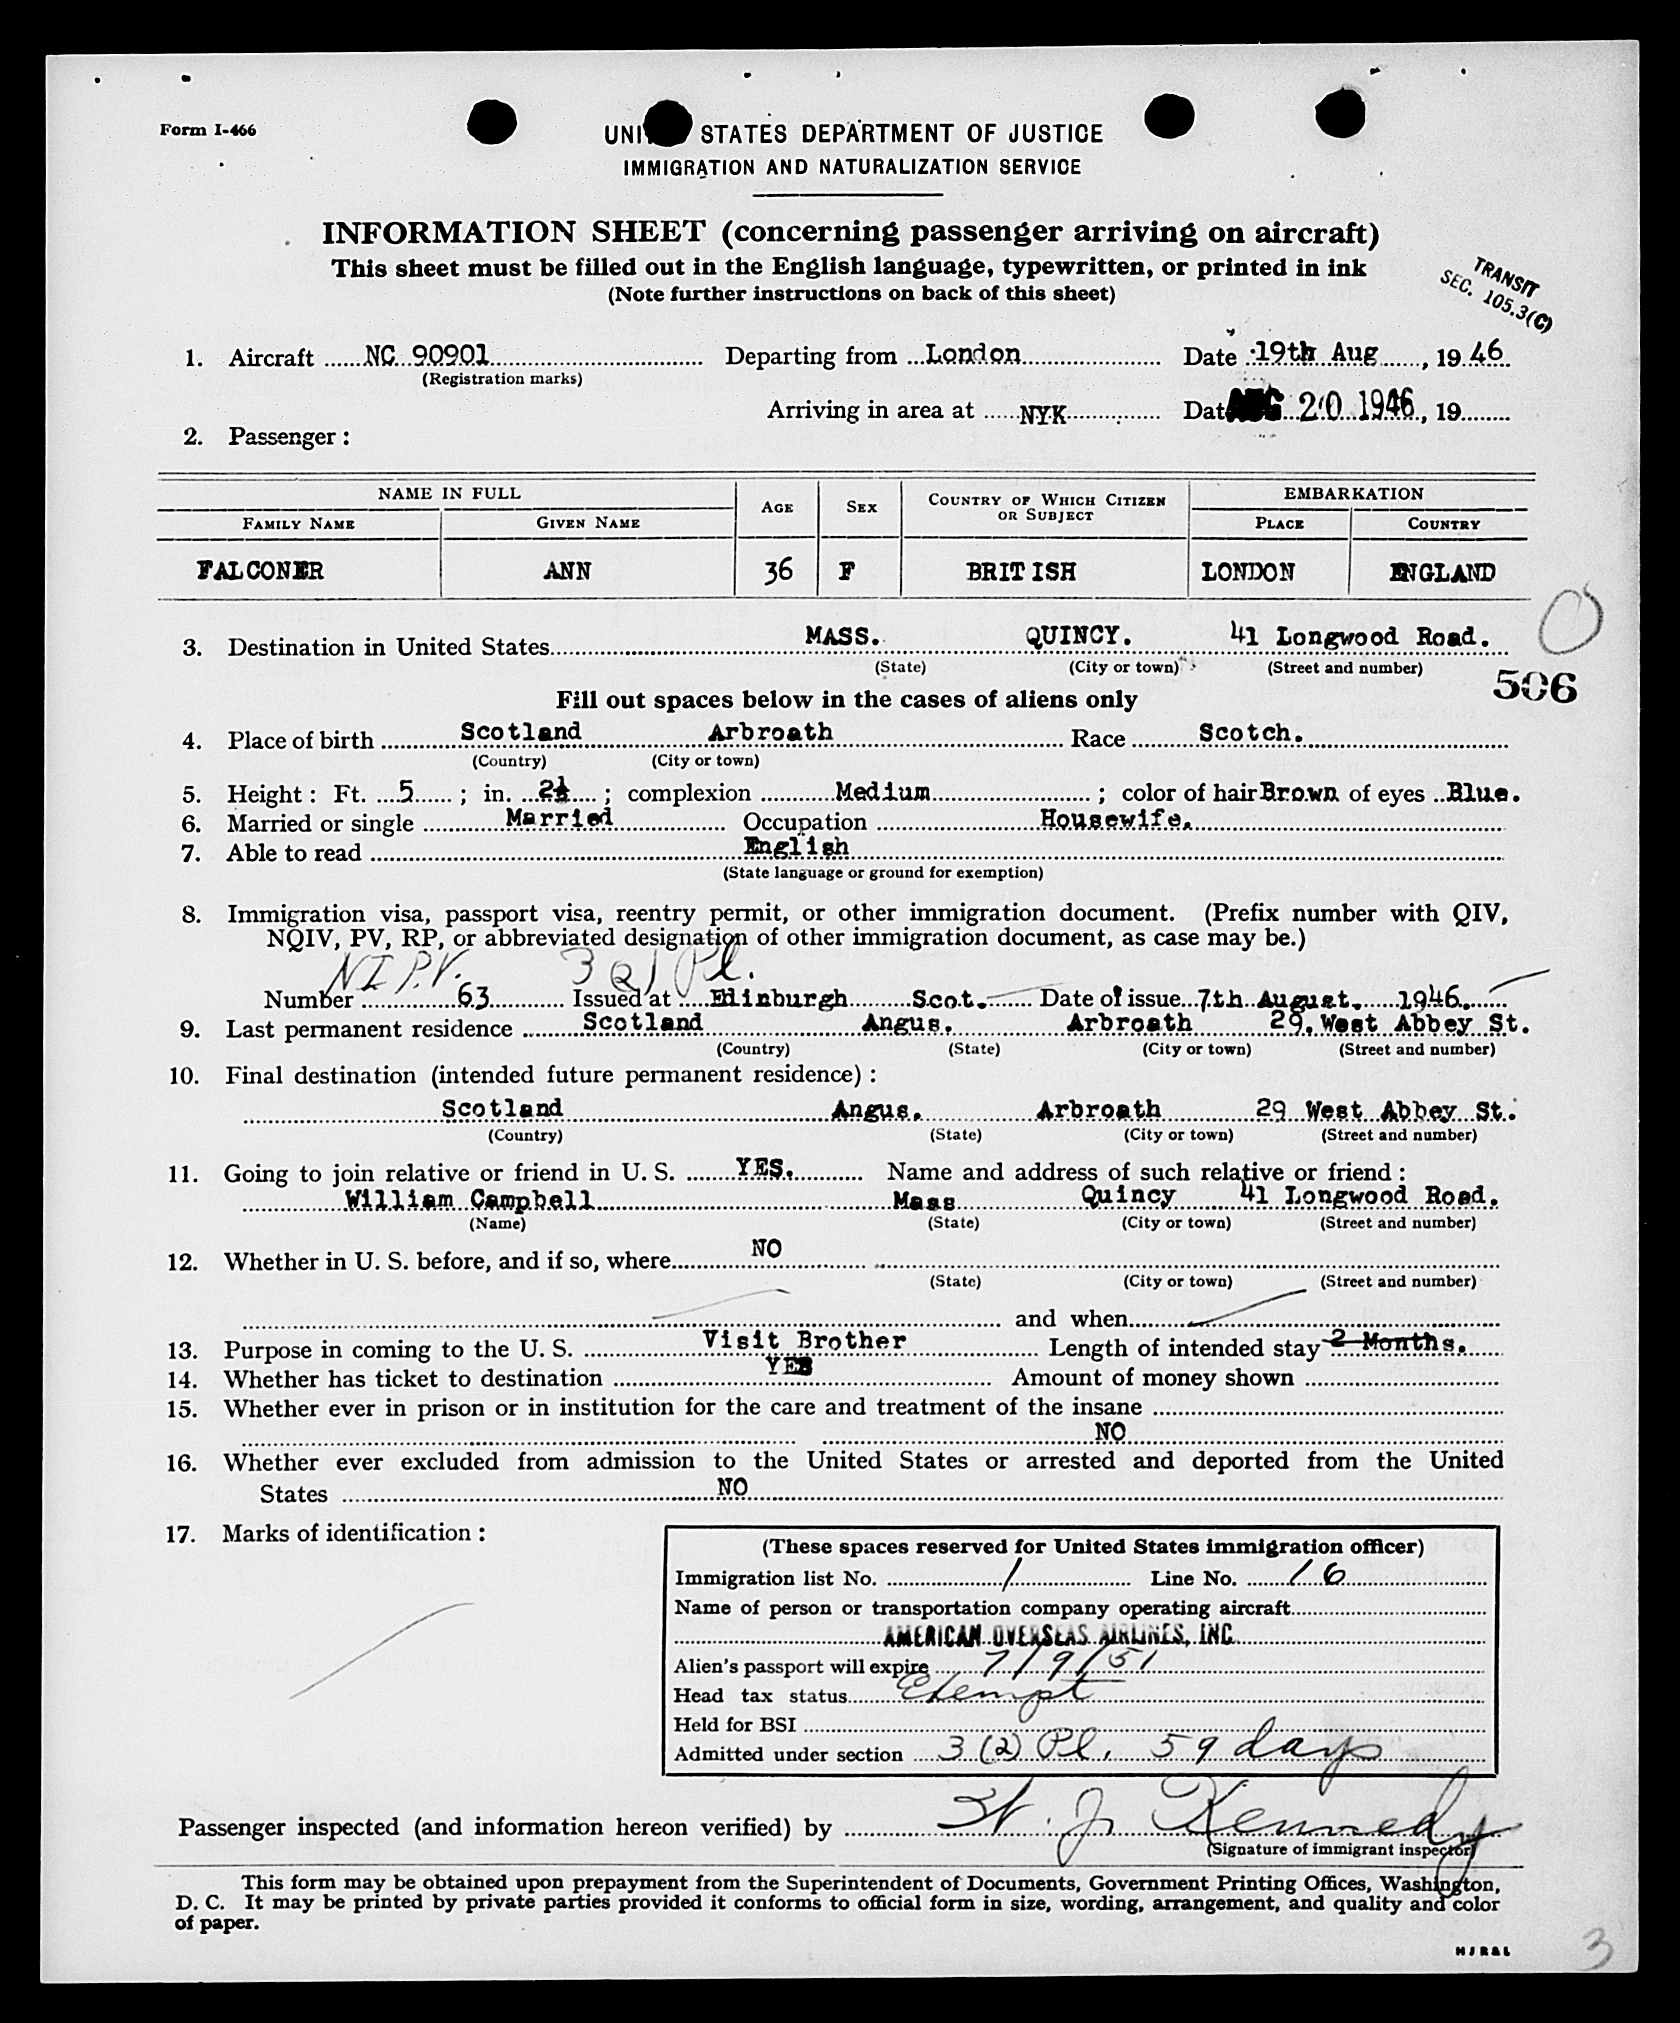 Form I-466
UNI STATES DEPARTMENT OF JUSTICE
IMMIGRATION AND NATURALIZATION SERVICE
INFORMATION SHEET (concerning passenger arriving on aircraft)
This sheet must be filled out in the English language, typewritten, or printed in ink
(Note further instructions on back of this sheet)
TRANSIT
SEC. 105.3(C)
1. Aircraft NC 90901 Departing from London Date 19th Aug, 1946
(Registration marks)
Arriving in area at NYK Dat AUG 20 1946, 19
2. Passenger:
NAME IN FULL AGE SEX COUNTRY OF WHICH CITIZEN OR SUBJECT EMBARKATION
FAMILY NAME GIVEN NAME PLACE COUNTRY
FALCONER ANN 36 F BRITISH LONDON ENGLAND
3. Destination in United States MASS. QUINCY. 41 Longwood Road.
(State) (City or town) (Street and number)
506
Fill out spaces below in the cases of aliens only
4. Place of birth Scotland Arbroath Race Scotch.
(Country) (City or town)
5. Height: Ft. 5; in. 2½; complexion Medium; color of hair Brown of eyes Blue.
6. Married or single Married Occupation Housewife.
7. Able to read English
(State language or ground for exemption)
8. Immigration visa, passport visa, reentry permit, or other immigration document. (Prefix number with QIV,
NQIV, PV, RP, or abbreviated designation of other immigration document, as case may be.)
NI P.V. 3(2) Pl.
Number 63 Issued at Edinburgh Scot. Date of issue 7th August. 1946.
9. Last permanent residence Scotland Angus. Arbroath 29. West Abbey St.
(Country) (State) (City or town) (Street and number)
10. Final destination (intended future permanent residence):
Scotland Angus. Arbroath 29 West Abbey St.
(Country) (State) (City or town) (Street and number)
11. Going to join relative or friend in U. S. YES. Name and address of such relative or friend:
William Campbell Mass Quincy 41 Longwood Road.
(Name) (State) (City or town) (Street and number)
12. Whether in U. S. before, and if so, where NO
(State) (City or town) (Street and number)
and when
13. Purpose in coming to the U. S. Visit Brother Length of intended stay 2 Months.
14. Whether has ticket to destination YES Amount of money shown
15. Whether ever in prison or in institution for the care and treatment of the insane
NO
16. Whether ever excluded from admission to the United States or arrested and deported from the United
States NO
17. Marks of identification:
(These spaces reserved for United States immigration officer)
Immigration list No. 1 Line No. 16
Name of person or transportation company operating aircraft
AMERICAN OVERSEAS AIRLINES, INC
Alien's passport will expire 7/9/51
Head tax status Exempt
Held for BSI
Admitted under section 3 (2) Pl. 59 days
Passenger inspected (and information hereon verified) by W. J. Kennedy
(Signature of immigrant inspector)
This form may be obtained upon prepayment from the Superintendent of Documents, Government Printing Offices, Washington,
D. C. It may be printed by private parties provided it conforms to official form in size, wording, arrangement, and quality and color
of paper.
3